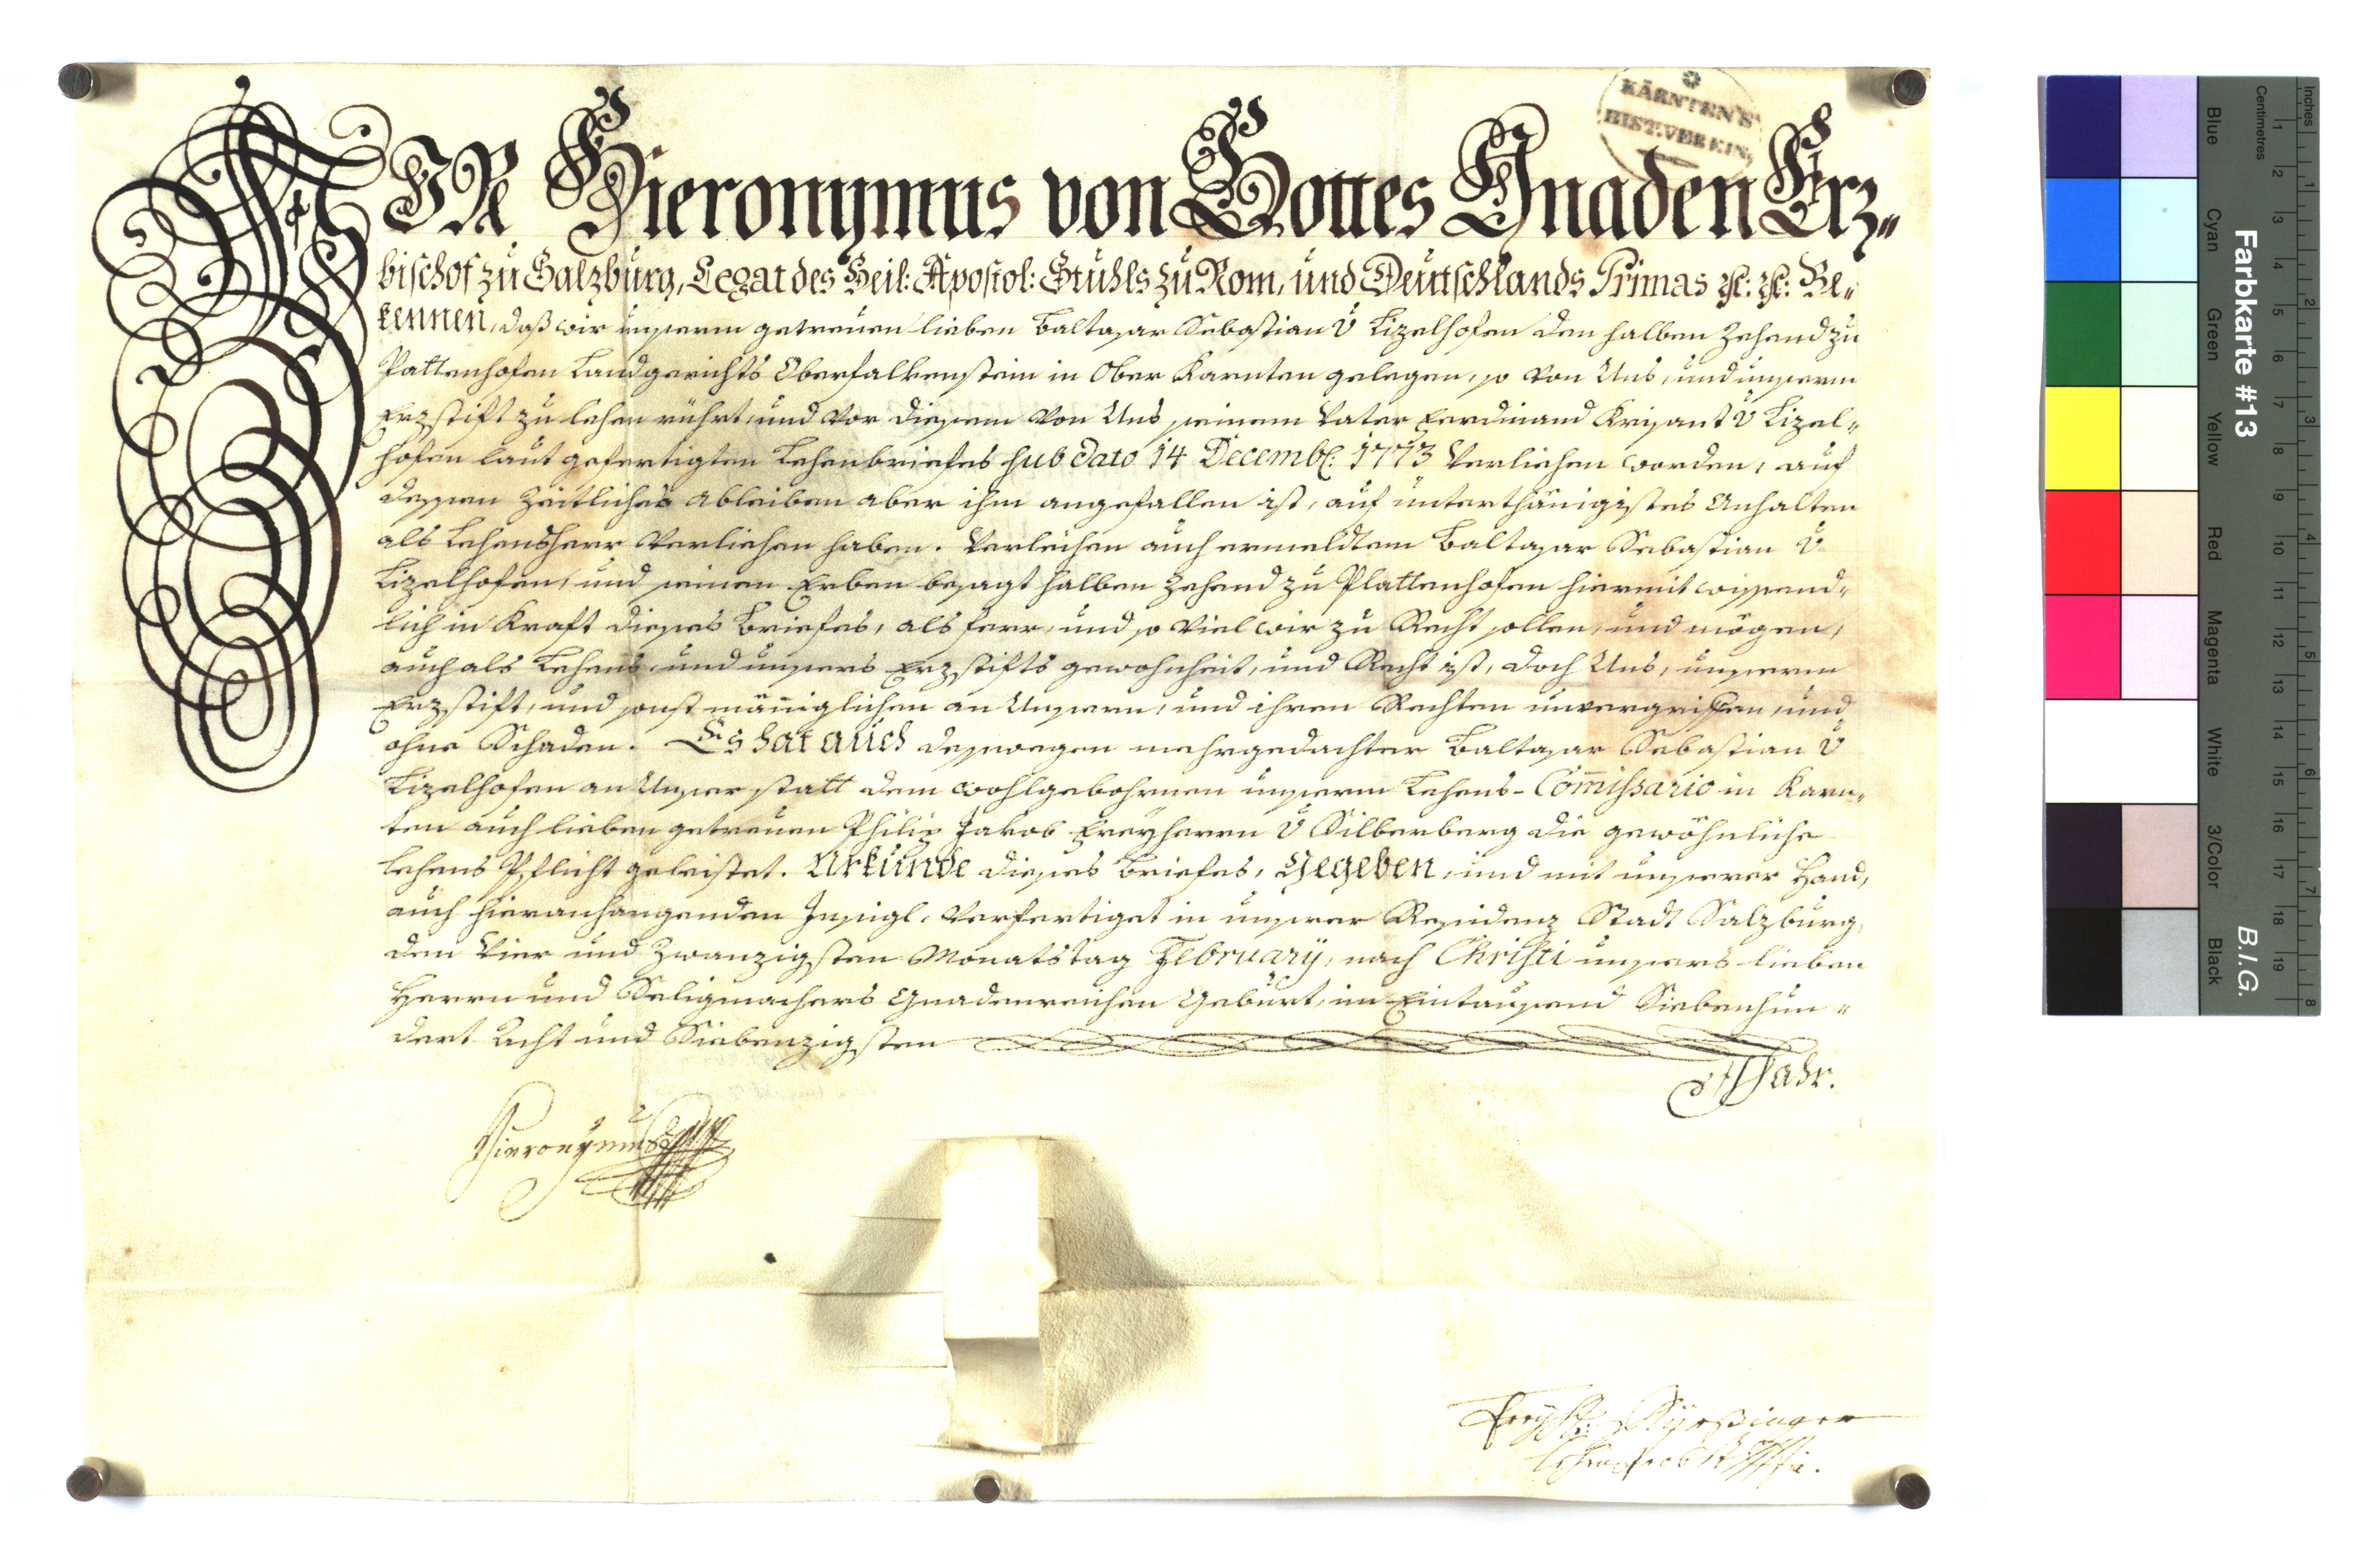 WIR Hieronymus von Gottes Gnaden Erz„
bischof zu Salzburg, Legat des Heil: Apostol: Stuhls zu Rom, und Deutschlands Primas ꝛc: ꝛc: Be„
kennen, daß wir unserm getreuen lieben Baltasar Sebastian v Lizelhofen den halben Zehend zu
Pattenhofen Landgerichts Oberfalkenstein in Ober Karnten gelegen, so von Uns, und unserm
Erzstift zu lehen rührt, und vor diesem von Uns seinem Vater Ferdinand Krisant v Lizel„
hofen laut gefertigten Lehenbriefes sub dato 14 Decemb: 1773 verliehen worden, auf
dessen zeitliches ableiben aber ihm angefallen ist, auf unterthänigistes Anhalten
als Lehensherr verliehen haben. Verleihen auch ermeldtem Baltasar Sebastian v
Lizelhofen, und seinen Erben besagt halben Zehend zu Plattenhofen hiermit wissend„
lich in Kraft dieses Briefes, als ferr, und so viel wir zu Recht sollen, und mögen,
auch als Lehens und unsers Erzstifts gewohnheit, und Recht ist, doch Uns, unserm
Erzstift, und sonst männiglichen an Unsern, und ihren Rechten unvergriffen, und
ohne Schaden. Es hat auch desswegen mehrgedachter Baltasar Sebastian v
Lizelhofen an Unser statt dem wohlgebohrnen unserm Lehens-Com̄issario in Karn„
ten auch lieben getreuen Philip Jakob Freyherrn v Silberberg die gewöhnliche
Lehens Pflicht geleistet. Urkunde dieses Briefes, Gegeben, und mit unserer Hand,
auch hieranhangenden Insigl, verfertiget in unserer Residenz Stadt Salzburg,
den Vier und Zwanzigsten Monatstag February, nach Christi unsers lieben
Herrn und Seligmachers Gnadenreichen Geburt, im Eintausend Siebenhun„
dert Acht und Siebenzigsten
Jahr.
Hieronymus
KÄRNTEN'S
HIST. VEREIN
Farbkarte #13
B.I.G.
Inches
Centimetres
Blue
Cyan
Green
Yellow
Red
Magenta
White
3/Color
Black
1 2 3 4 5 6 7 8 9 10 11 12 13 14 15 16 17 18 19
1 2 3 4 5 6 7 8